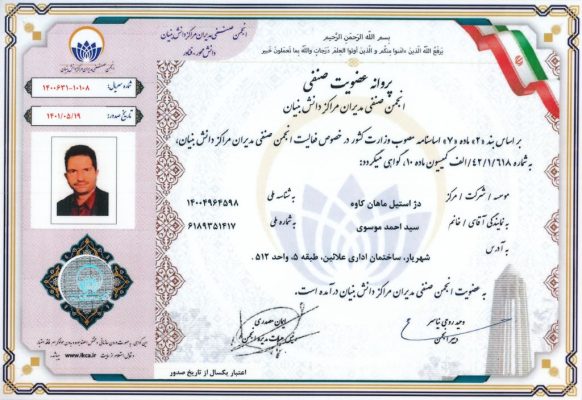 بسم الله الرحمن الرحیم
یرفع الله الذین ءامنوا منکم و الذین أوتوا العلم درجات والله بما تعملون خبیر
انجمن صنفی مدیران مراکز دانش بنیان
دانش محور، فناور
انجمن صنفی مدیران مراکز دانش بنیان
شماره سریال: ۱۴۰۰۶۳۱-۱۰۱۰۸
تاریخ صدور: ۱۴۰۱/۰۵/۱۹
پروانه عضویت صنفی
انجمن صنفی مدیران مراکز دانش بنیان
بر اساس بند «۲» ماده «۷» اساسنامه مصوب وزارت کشور در خصوص فعالیت انجمن صنفی مدیران مراکز دانش بنیان،
به شماره ۴۲/۱/۶۱۸/الف کمیسیون ماده ۱۰، گواهی میگردد:
موسسه / شرکت / مرکز دژ استیل ماهان کاوه به شناسه ملی ۱۴۰۰۴۹۶۴۵۹۸
به نمایندگی آقای / خانم سید احمد موسوی به شماره ملی ۶۱۸۹۳۵۱۴۱۷
به آدرس شهریار، ساختمان اداری علائین، طبقه ۵، واحد ۵۱۲.
به عضویت انجمن صنفی مدیران مراکز دانش بنیان درآمده است.
وحید روحی نیاسر
دبیر انجمن
ایمان صفدری
www.ikca.ir
اعتبار یکسال از تاریخ صدور